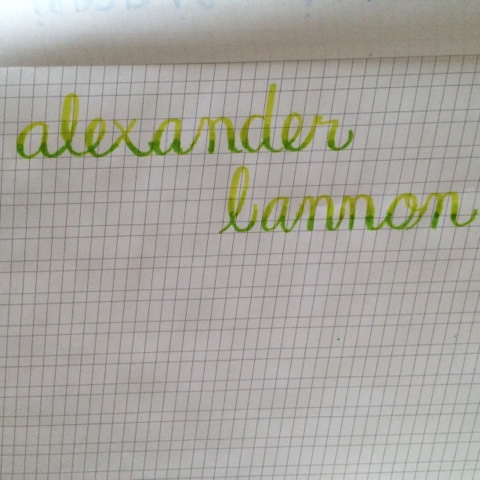 alexander
bannon